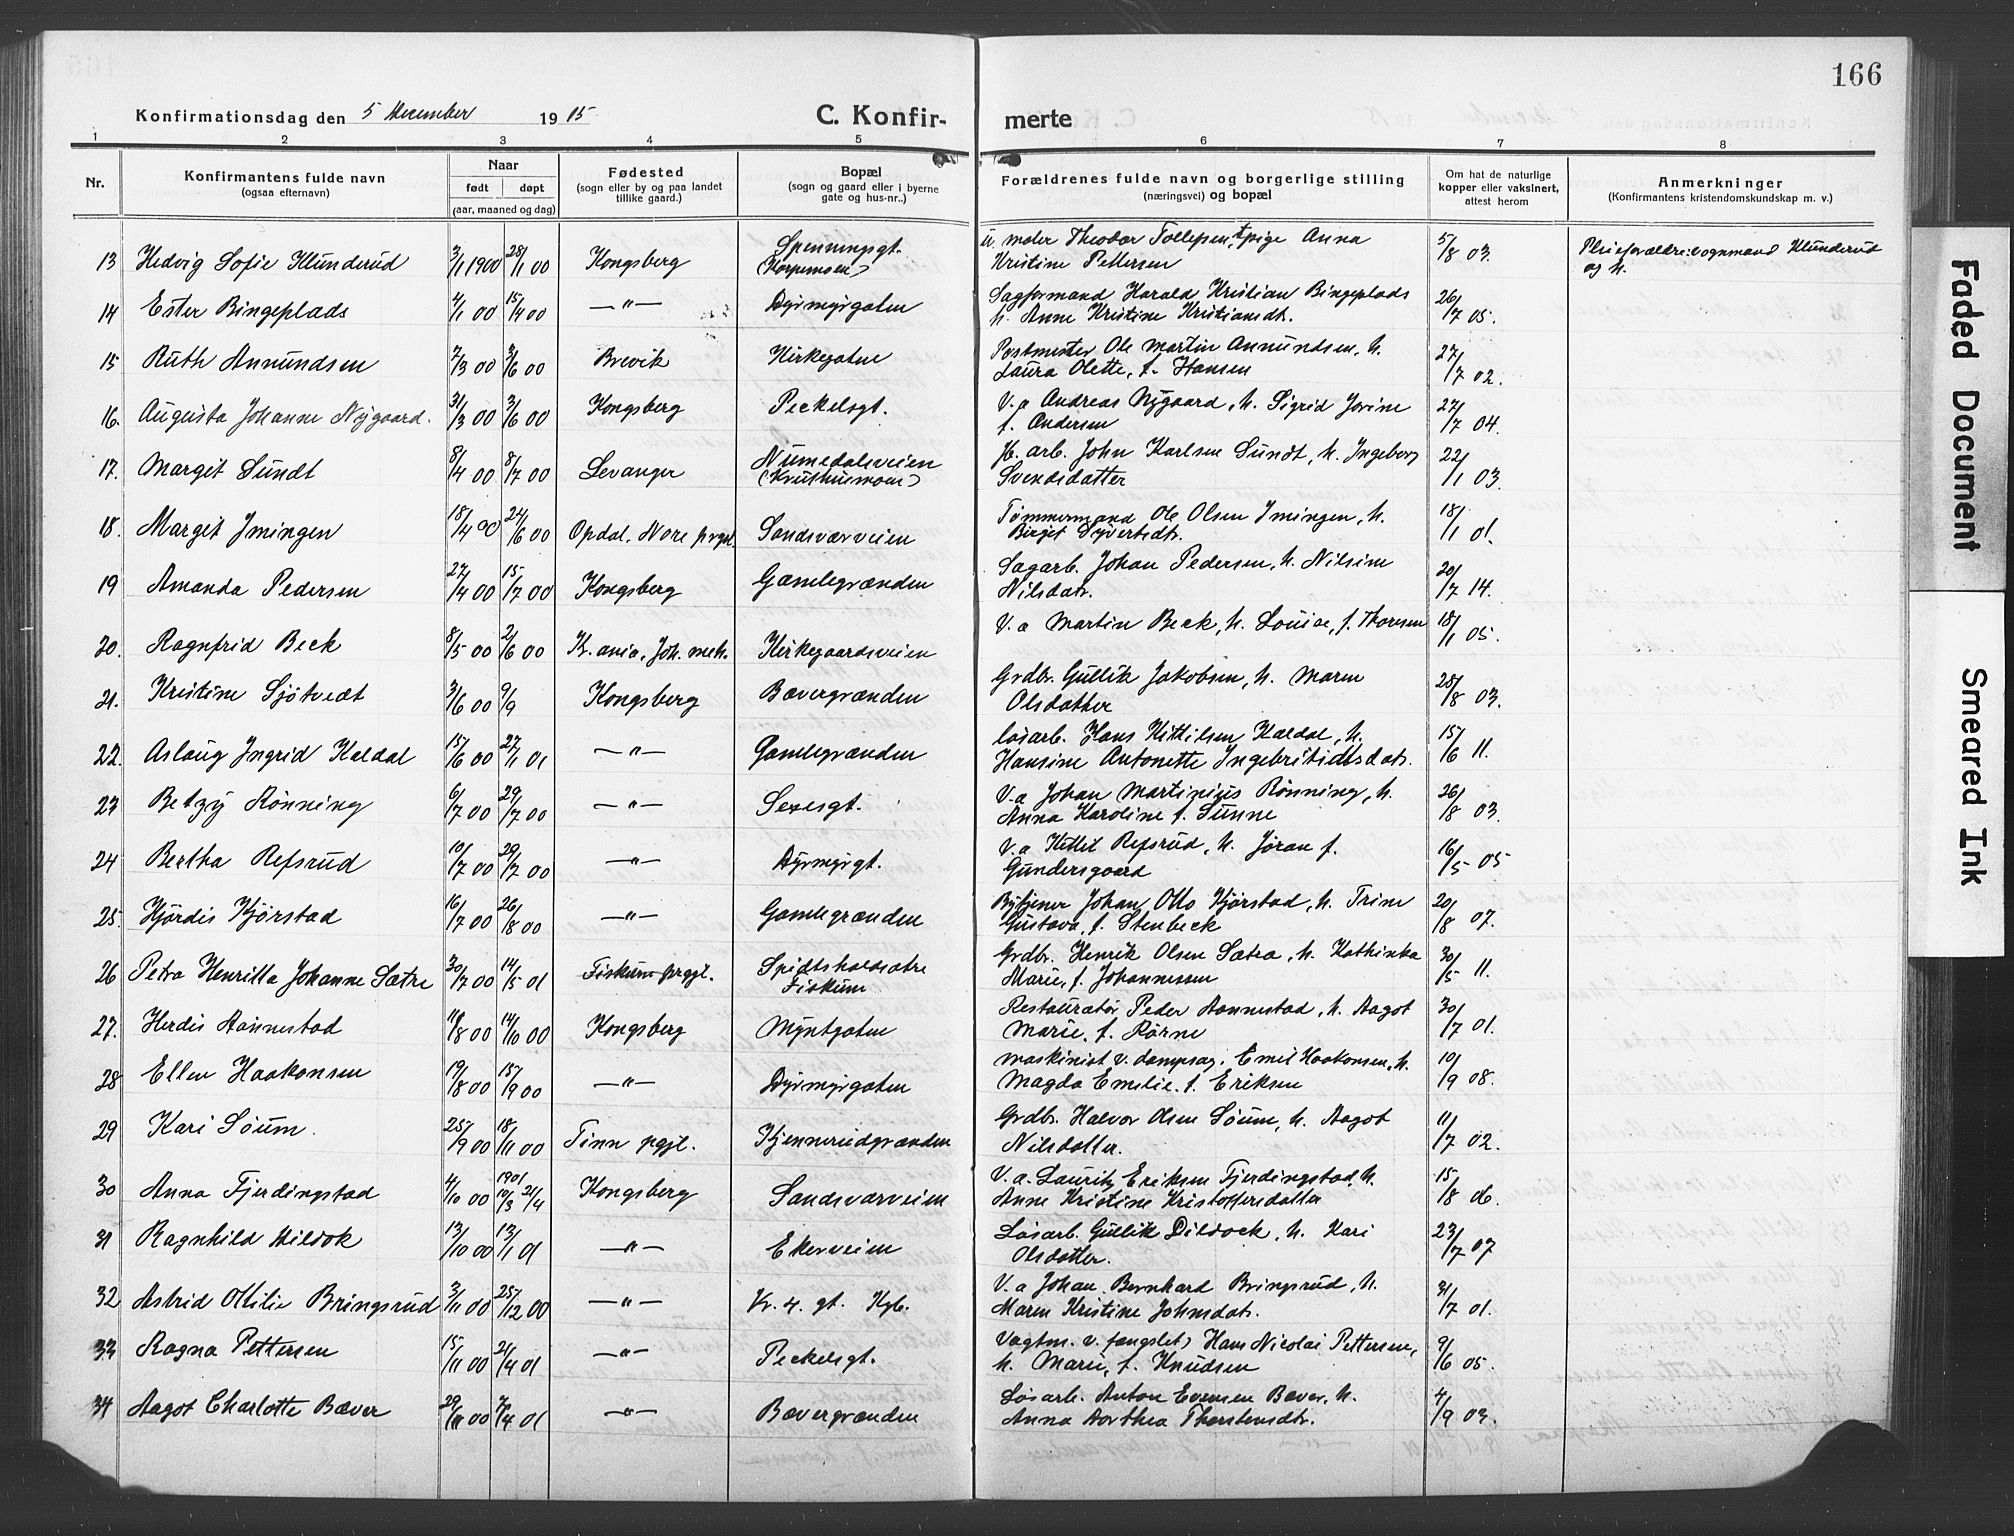 166
Konfirmationsdag den 5 December 1915
C. Konfirmerte
1 2 3 4 5 6 7 8
Nr.
Konfirmantens fulde navn
(ogsaa efternavn)
Naar
født døpt
(aar, maaned og dag)
Fødested
(sogn eller by og paa landet
tillike gaard.)
Bopæl
(sogn og gaard eller i byerne
gate og hus-nr..)
Forældrenes fulde navn og borgerlige stilling
(næringsvei) og bopæl
Om hat de naturlige
kopper eller vaksinert,
attest herom
Anmerkninger
(Konfirmantens kristendomskundskap m. v.)
13 Hedvig Sofie Klunderud 3/1 1900 28/1 00 Kongsberg Spenningsgt. u. moder Theodor Tollepsen, pige Anna 5/8 03. Pleieforældre: vognmand Klunderud
Kristine Pettersen og h.
14 Ester Bingeplads 4/1 00 15/4 00 —"— Dyrmyrgaten Sagformand Harald Kristian Bingeplads 26/7 05.
h. Anne Kristine Kristiansdt.
15 Ruth Amundsen 7/3 00 3/6 00 Brevik Kirkegaten Postmester Ole Martin Amundsen, h. 27/7 02.
Laura Olette, f. Hansen
16. Augusta Johanne Nygaard. 31/3 00 3/6 00 Kongsberg Peckelsgt. V.a Andreas Nygaard, h. Sigrid Jorine 27/7 04.
f. Andersen
17. Margit Sundt 8/4 00 8/7 00 Levanger Numedalsveien Jb. arb. John Karlsen Sundt, h. Ingeborg 22/1 03.
(Kruthusmoen) Svendsdatter
18. Margit Imingen 18/4 00 24/6 00 Opdal, Nore prgjl. Sandsværveien Tømmermand Ole Olsen Imingen, h. 18/1 01.
Birgit Syvertsdtr.
19 Amanda Pedersen 27/4 00 15/7 00 Kongsberg Gamlegrænden Sagarb. Johan Pedersen, h. Nilsine 20/7 14.
Nilsdatr.
20. Ragnfrid Beck 8/5 00 2/6 00 Kr.ania, Joh. meh. Kirkegaardsveien V.a Martin Beck, h. Louise, f. Thoresen 18/1 05.
21. Kristine Sjøtvedt 3/6 00 9/9 Kongsberg Bævergrænden Grdbr. Gullik Jakobsen, h. Maren 28/8 03.
Olsdatter
22. Aslaug Ingrid Kaldal 15/6 00 27/1 01 —"— Gamlegrænden Løsarb. Hans Kittilsen Kaldal, h. 15/6 11.
Hansine Antonette Ingebrigtsdatr.
23 Betzy Rønning 6/7 00 29/7 00 —"— Sexesgt. V.a Johan Martinius Rønning, h. 26/8 03.
Anna Karoline f. Sunne
24 Bertha Refsrud 10/7 00 29/7 00 —"— Dyrmyrgt. V.a Kittil Refsrud, h. Jøran f. 16/5 05
Gundersgaard
25. Hjørdis Kjørstad 16/7 00 26/8 00 —"— Gamlegrænden Bytjener Johan Otto Kjørstad, h. Trine 20/8 07.
Gustava, f. Stenbeck
26 Petra Henritta Johanne Sætre 30/7 00 14/5 01 Fiskum prgjl. Spidtsholdsætre Grdbr. Henrik Olsen Sætra, h. Kathinka 30/5 11.
Fiskum Marie, f. Johannessen
27. Herdis Aannestad 11/8 00 14/10 00 Kongsberg Myntgaten Restauratør Peder Aannestad, h. Aagot 30/7 01.
Marie, f. Rørne
28 Ellen Haakonsen 19/8 00 15/9 00 —"— Dyrmyrgaten Maskinist v. dampsag, Emil Haakonsen, h. 10/9 08.
Magda Emelie, f. Eriksen
29 Kari Søum. 25/9 00 18/11 00 Tinn pgjl. Kjennerudgrænden Grdbr. Halvor Olsen Søum, h. Aagot 11/7 02.
Nilsdatter.
30 Anna Fjerdingstad 4/10 00 1901 10/3 21/4 Kongsberg Sandsværveien V.a. Lauritz Eriksen Fjerdingstad, h. 15/8 06.
Anne Kristine Kristoffersdatter
31 Ragnhild Dildok 13/10 00 13/1 01 —"— Ekerveien Løsarb. Gullik Dildock, h. Kari 23/7 07
Olsdatter.
32 Astrid Ottilie Bringsrud 3/11 00 25/12 00 —"— Kr. 4. gt. Kgb. V.a Johan Bernhard Bringsrud, h. 31/7 01.
Maren Kristine Johnsdatr.
33 Ragna Pettersen 15/11 00 21/4 01 —"— Peckelsgt. Vagtm. v. fængslet) Hans Nicolai Pettersen, 9/6 05.
h. Marie, f. Knudsen
34 Aagot Charlotte Bæver 29/11 00 7/4 01 —"— Bævergrænden Løsarb. Anton Evensen Bæver, h. 4/9 03.
Anna Dorthea Thorstensdtr.
Faded Document
Smeared Ink